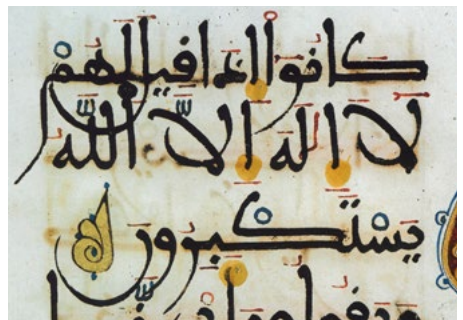 كَانُوا إِذَا قِيلَ لَهُمْ
لَا إِلَٰهَ إِلَّا اللَّهُ
يَسْتَكْبِرُونَ